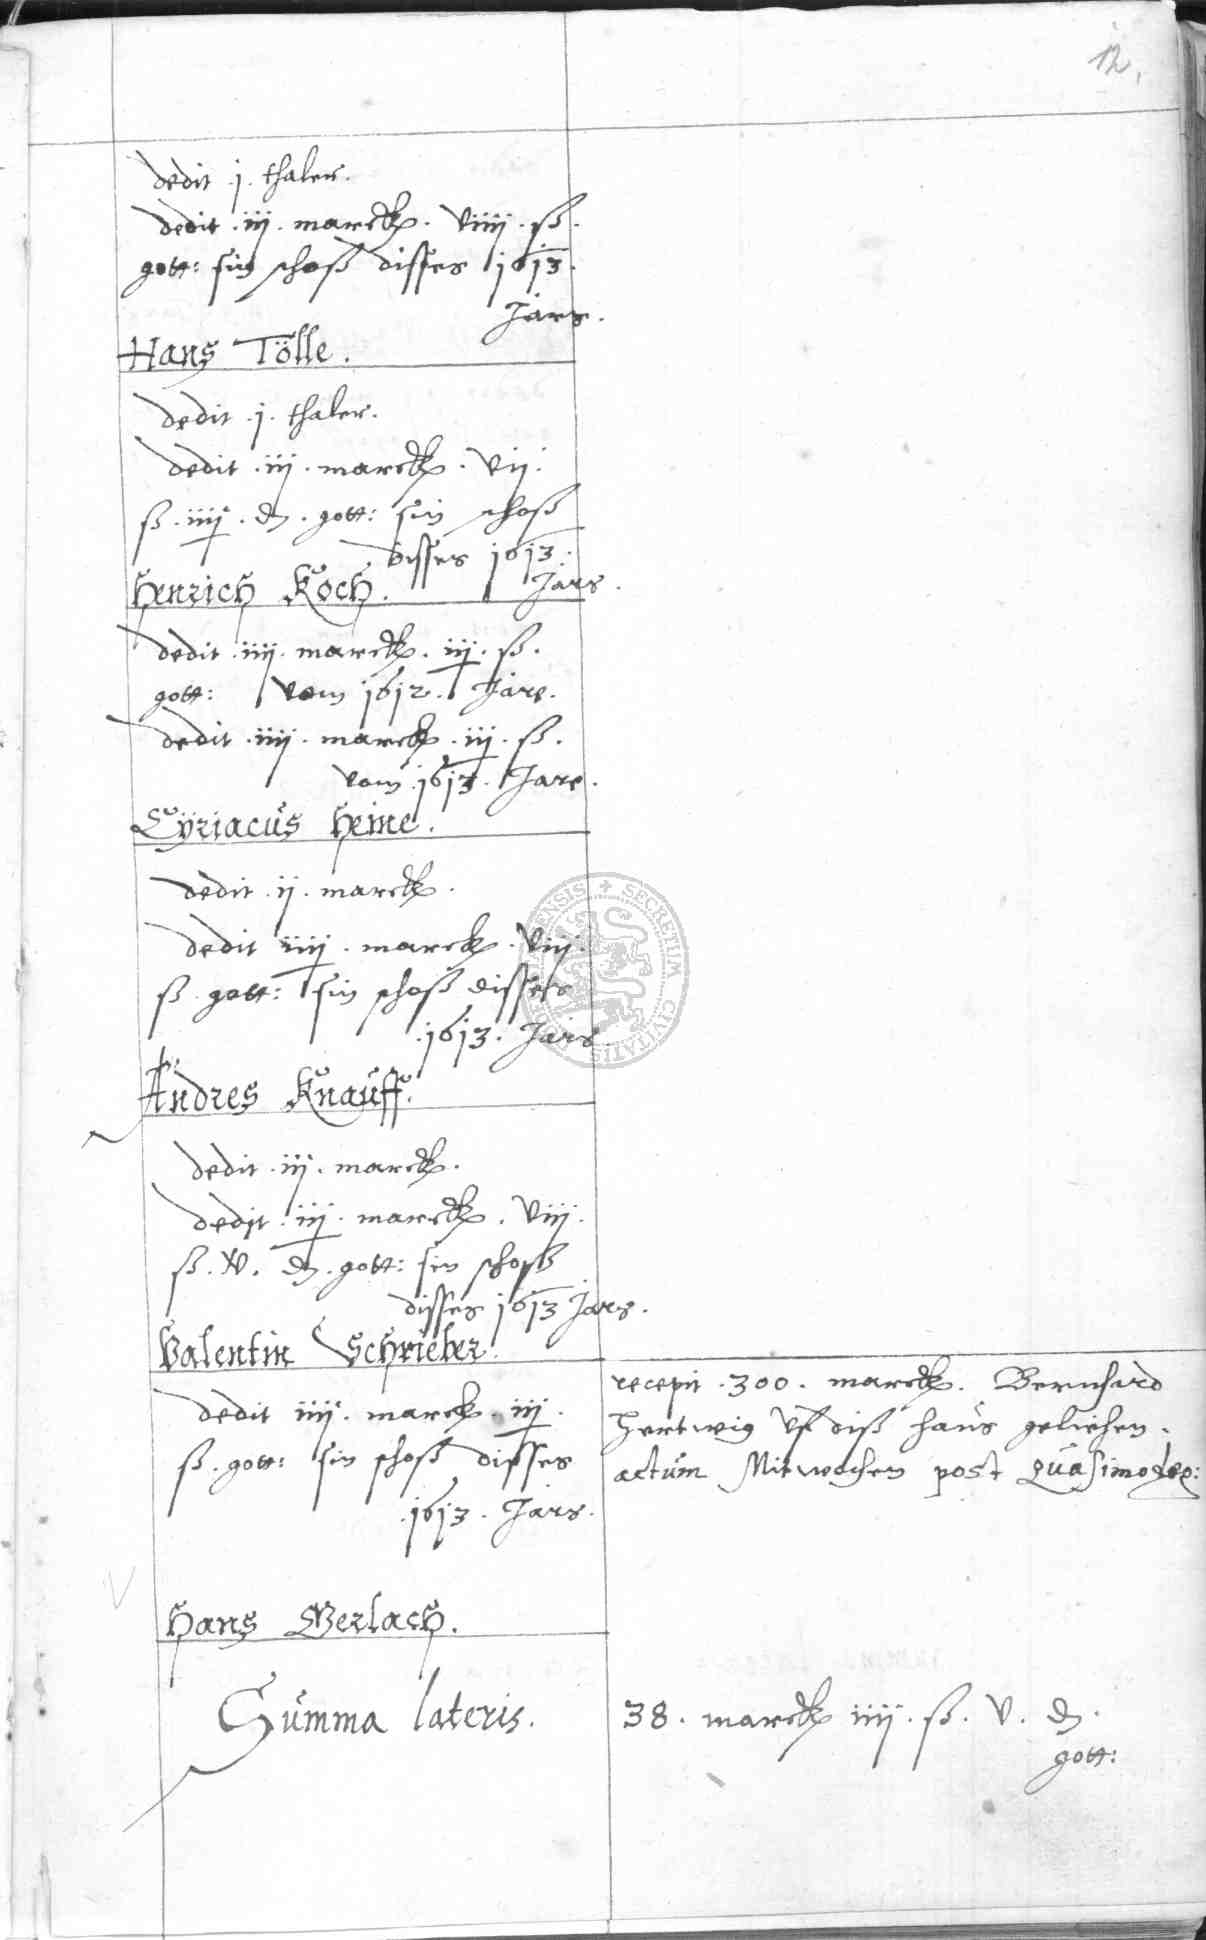 12.
dedit .j. thaler.
dedit .iij. marck. viiij. ß.
gott: sin schoß disses 1613.
Jars.
Hans Tölle.
dedit .j. thaler.
dedit .iij. marck. vij.
ß. iiij. d. gott: sin schoß
disses 1613.
Jars.
Henrich Koch.
dedit .iiij. marck. iij. ß.
gott: vom 1612. Jare.
dedit .iiij. marck. iij. ß.
vom 1613. Jare.
Cÿriacus Heine.
dedit .ij. marck.
dedit iiij. marck. viij.
ß. gott: sin schoß disses
.1613. Jars.
Andres Knauff.
dedit .iij. marck.
dedit .iij. marck. viij.
ß. v. d. gott: sin schoß
disses 1613 Jars.
Valentin Schrieber.
dedit iiij. marck. iij.
ß. gott: sin schoß disses
.1613. Jars.
recepit .300. marck. Bernhard
Hertwig uf diß haus geliehen.
actum Mitwochen post Quasimodog:
Hans Gerlach.
Summa lateris.
38. marck iiij. ß. v. d.
gott:
SECRETUM CIVITATIS